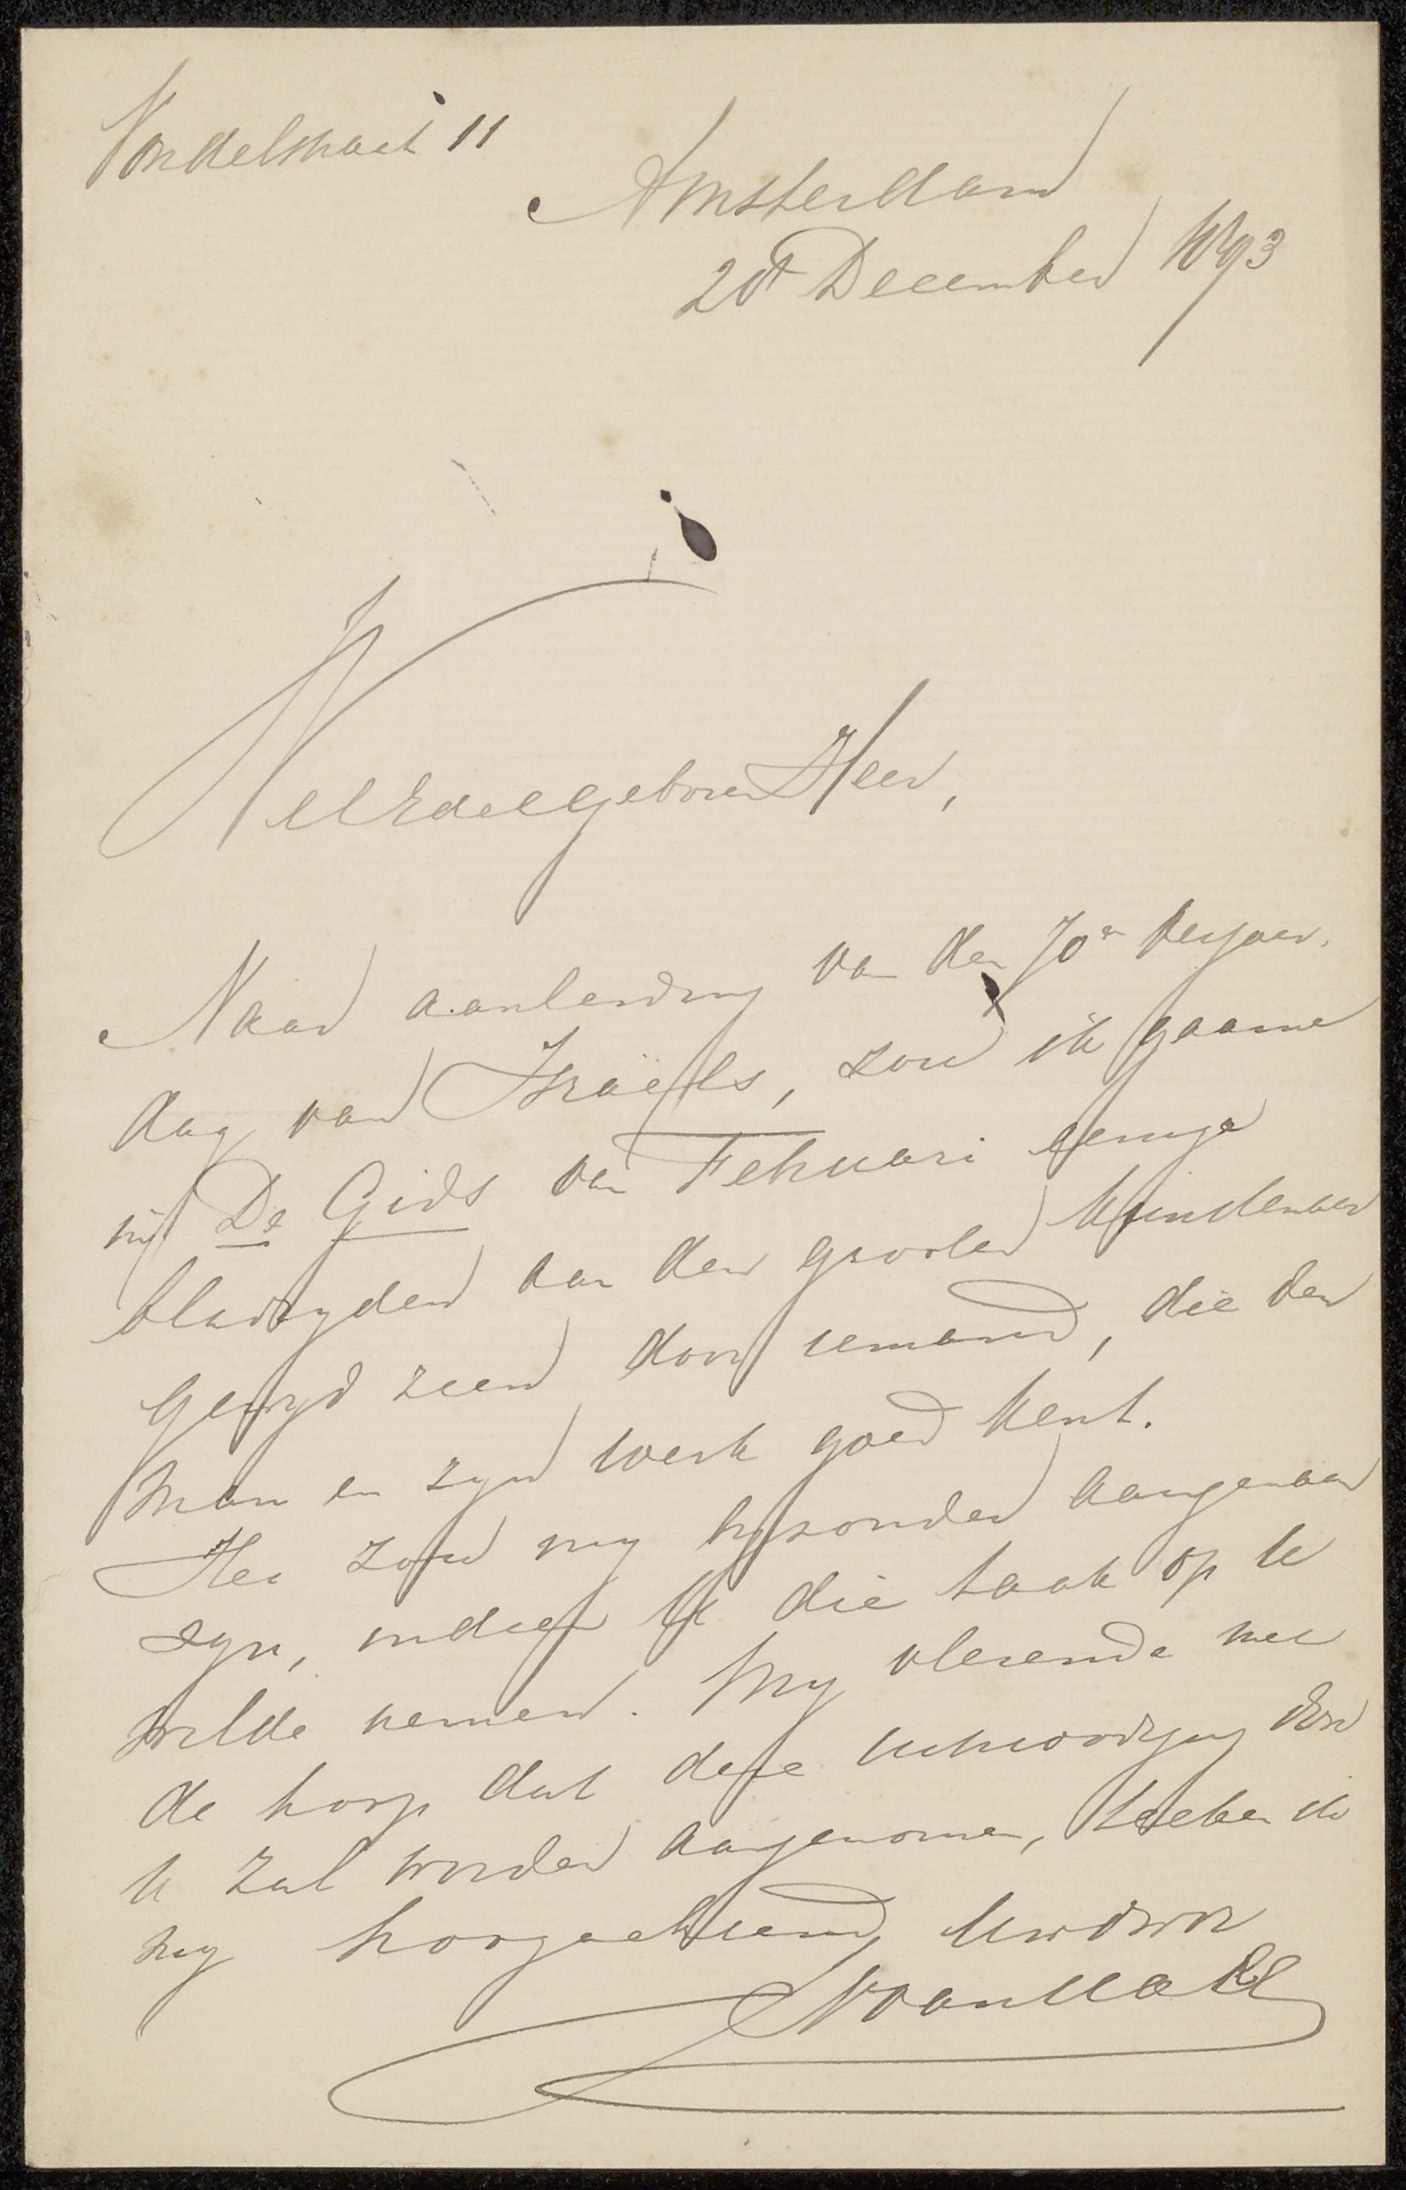 Vondelstraat 11
Amsterdam
20 December 1893
WelEdelgeboren Heer,
Naar aanleiding van den 70n verjaar-
dag van Israëls, zou ik gaarne
in De Gids van Februari eenige
bladzyden aan den grooten kunstenaar
gewyd zien door iemand, die den
man en zyn werk goed kent.
Het zou my byzonder aangenaam
zyn, indien U die taak op U
wilde nemen. My vleiende met
de hoop dat deze uitnoodiging door
U zal worden aangenomen, teeken ik
my hoogachtend Uwdwdr
JNvanHall